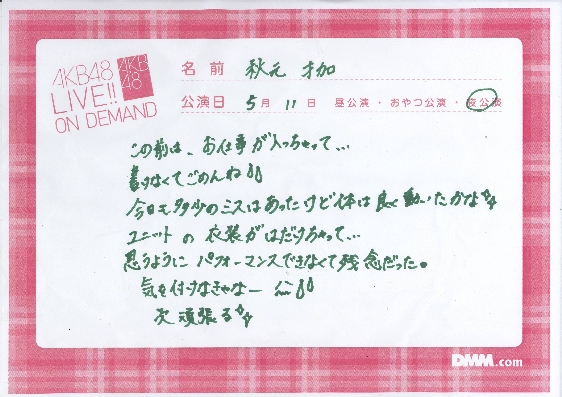 AKB48
LIVE!!
ON DEMAND
AKB
48
名前 秋元 才加
公演日 5月 11日 昼公演・おやつ公演・夜公演
この前は、お仕事が入っちゃって…
書けなくてごめんね
今日も多少のミスはあったけど体は良く動いたかな
ユニットの衣装がはだけちゃって…
思うようにパフォーマンスできなくて残念だった。
気を付けなきゃなー
次頑張る
DMM.com